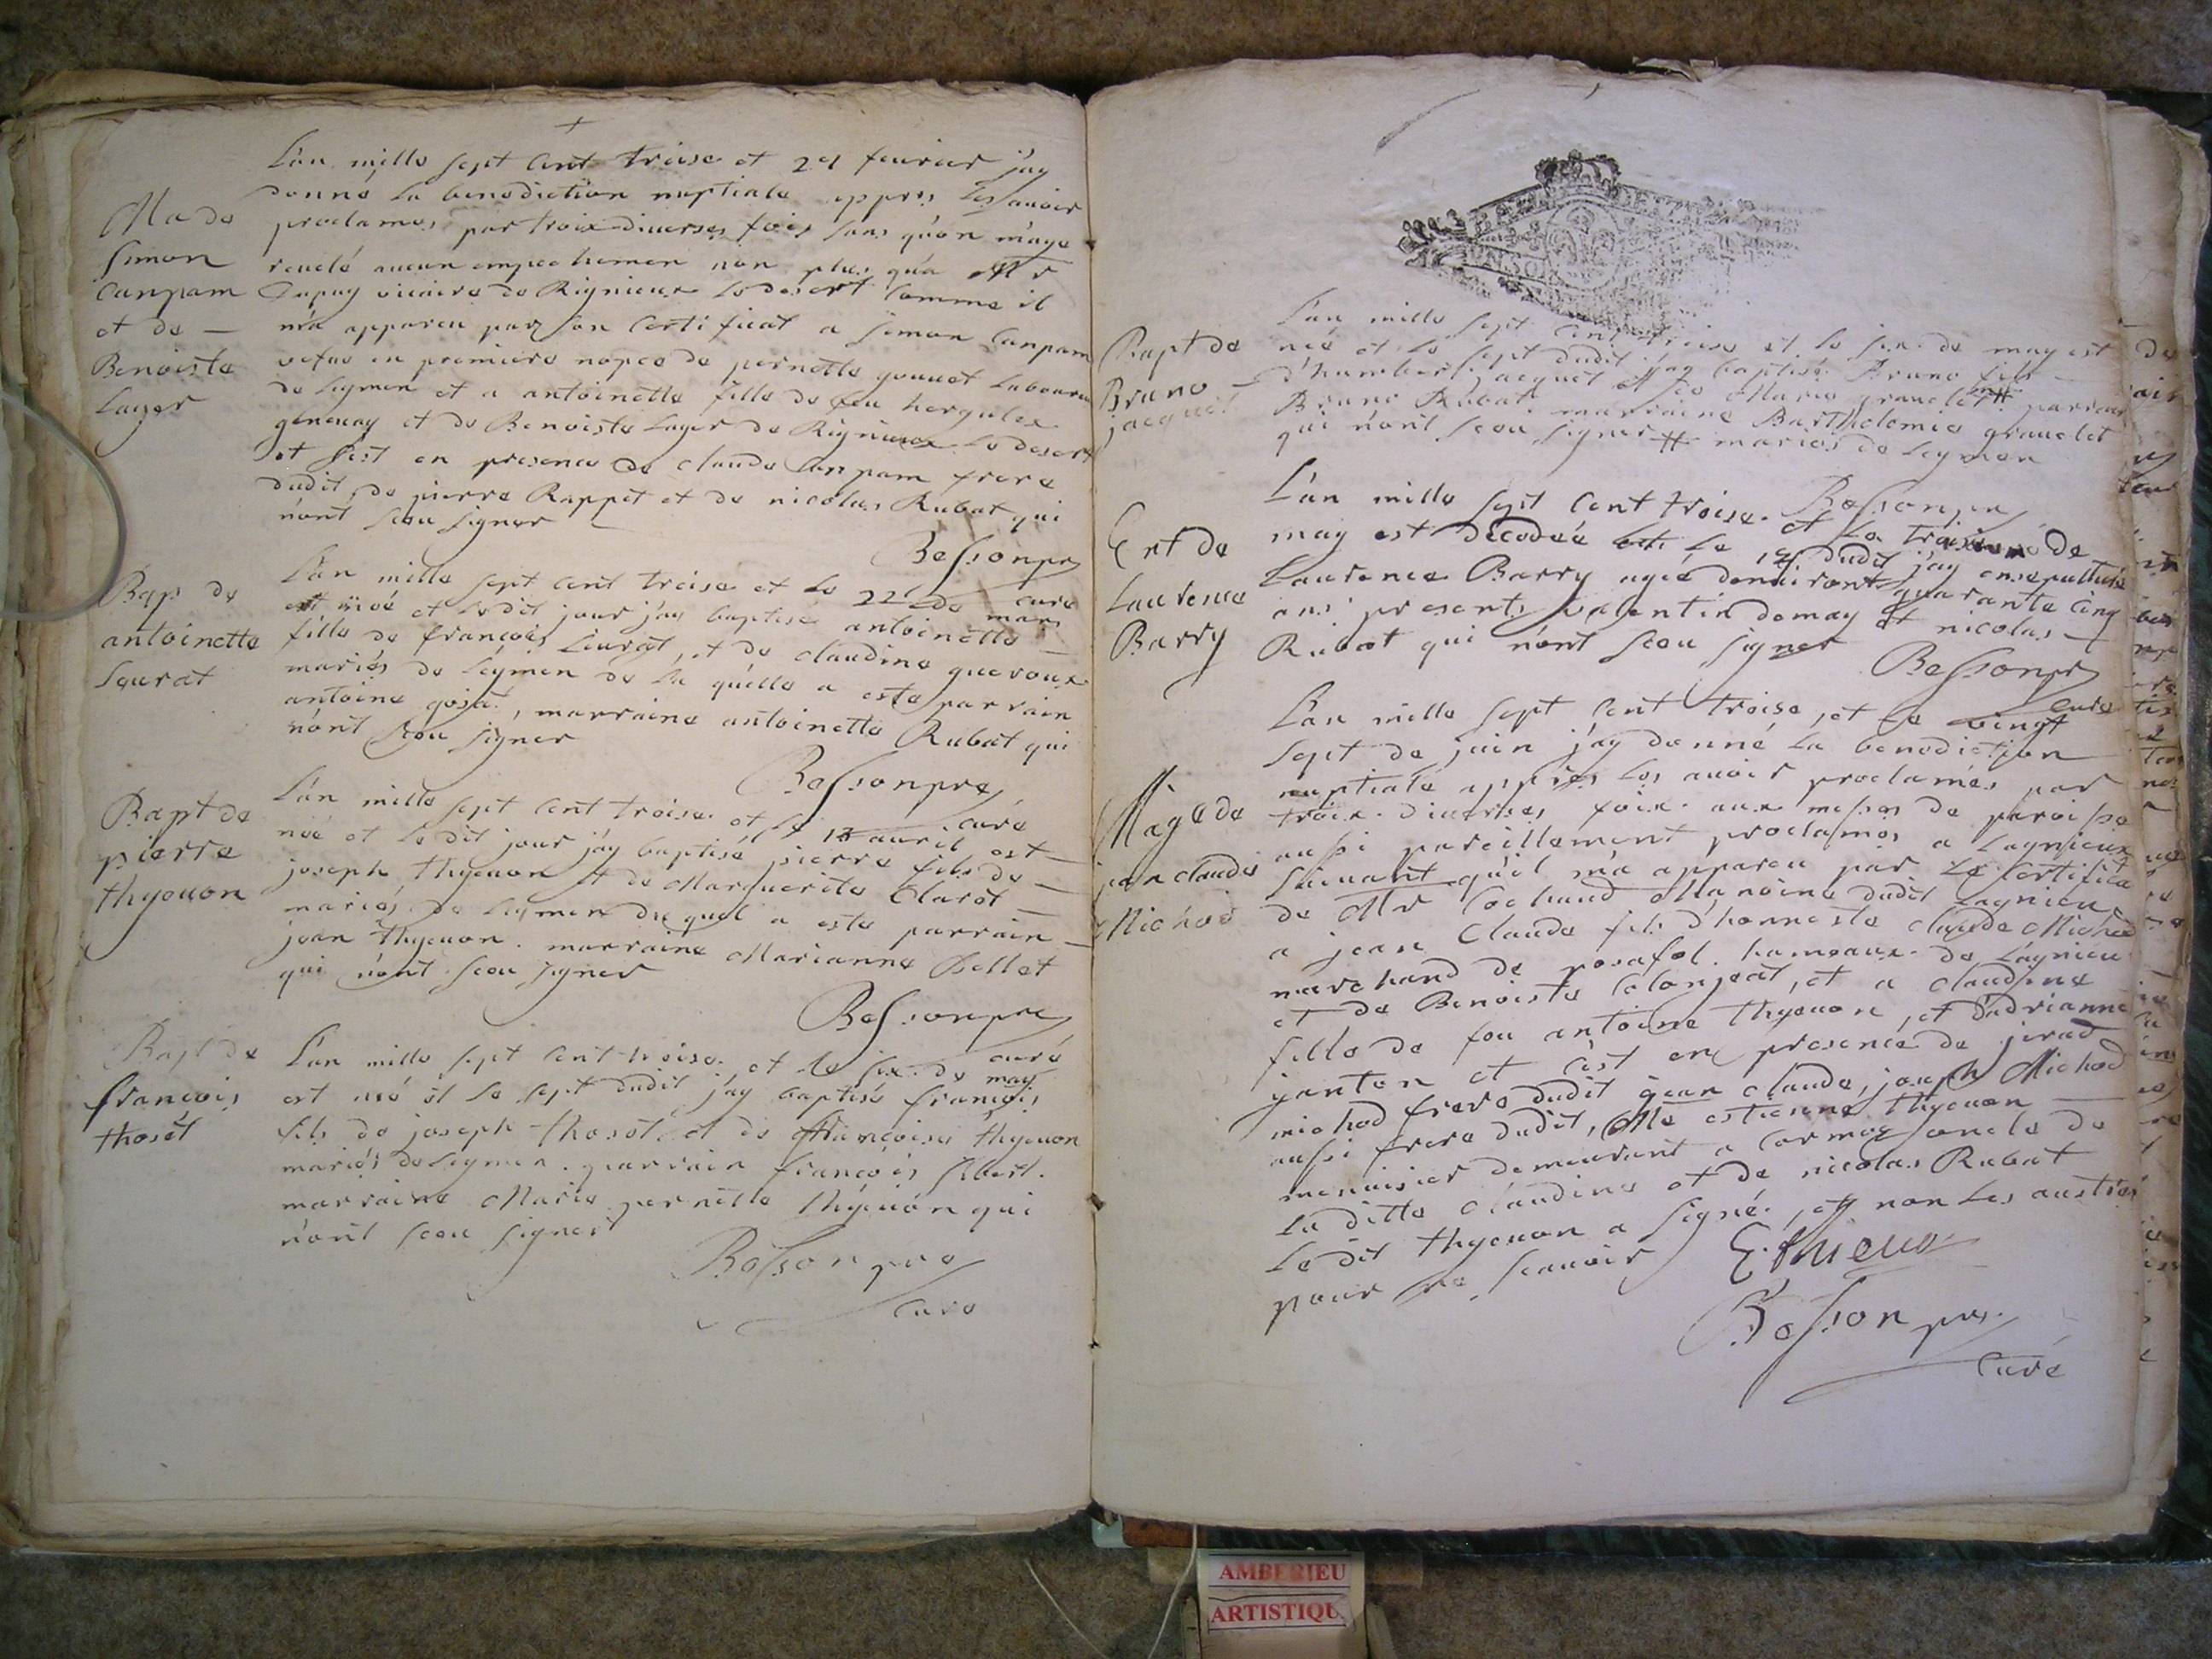 Ma de
Simon
Canpam
et de —
Benoiste
Layer
L'an mille sept Cent treise et 21 feurier j'ay
donné la benediction nuptiale appres les auoir
proclames par troix diuerses fois sans qu'on m'aye
reuelé aucun empechemen non plus qu'a Mr
Dupuy vicaire de Rignieux le desert Comme il
m'a apparcu par son Certificat a Simon Canpam
vefue en premiere nopce de pernette gonnet Laboureu
de Leymen et a antoinette fille de feu hergules
geneuay et de Benoiste Layer de Rignieux le desert
et s'est en presence de Claude Canpam frere
dudit, de pierre Rappet et de nicolas Rubat qui
n'ont sceu signer
Bessonpre
curé
Bap de
antoinette
Leurat
L'an mille sept cent treise et le 22 de mars
est néé et ledit jour j'ay baptisé antoinette —
fille de françois Leurat, et de claudine queroux
mariés de Leymen de la quelle a este parrain
antoine gojat, marraine antoinette Rubat qui
n'ont sceu signer
Bessonpre
curé
Bapt de
pierre
thyeuon
L'an mille sept cent treise et le 13 auril est —
néé et ledit jour j'ay baptisé pierre fils de —
joseph thyeuon et de Marguerite Clarot —
mariés de Leymen duquel a este parrain —
jean thyeuon. marraine Marianne Bellet
qui n'ont sceu signer
Bessonpre
curé
Bapt de
françois
thosét
L'an mille sept cent treise, et le six de may
est néé et le sept dudit j'ay baptisé françois
fils de joseph thosét et de françoise thyeuon
mariés de Leymen. parrain françois Jlbert.
marraine Marie pernette thyeuon qui
n'ont sceu signer
Bessonpre
Curé
Bapt de
Bruno —
jacquet
L'an mille sept Cent treise et le six de may est
néé et le sept dudit j'ay baptisé Bruno fils
d'humbert jacquet et de Marie grauelet # parrain
Bruno Rubat. marraine Barthelemie grauelet
qui n'ont sceu signer # mariés de Leymen
Bessonpre
Ent de
Laurence
Barry
L'an mille sept Cent treise. et la treisieme de
may est decedée et le 14 dudit j'ay ensepulturé
Laurence Barry agée denuiront quarante cinq
ans presents valentin demay et nicolas —
Rubat qui n'ont sceu signer
Bessonpre
curé
Mage de
jean claude
Michod
L'an mille sept Cent treise, et le vingt
sept de juin j'ay donné la benediction
nuptiale appres les auoir proclamés par
troix diuerses foix aux messes de paroisse
aussi pareillement proclamés a Lagnieux
suiuant qu'il m'a apparcu par le certificat
de Mr Cochaud Chanoine dudit Lagnieu
a jean Claude fils d'honneste claude Michod
marchand de posafol hameaux de Lagnieu
et de Benoiste Colonjeat, et a Claudine
fille de feu antoine thyeuon, et d'adrianne
janton et c'est en presence de jirad
michod frere dudit jean claude, joseph Michod
aussi frere dudit, Me estienne thyeuon —
menuisier demeurant a Cormoz oncle de
la ditte claudine et de nicolas Rubat
ledit thyeuon a signé, et non les austres
pour ne scauoir
E. thieuo
Besson pre.
Curé
AMBERIEU
ARTISTIQU